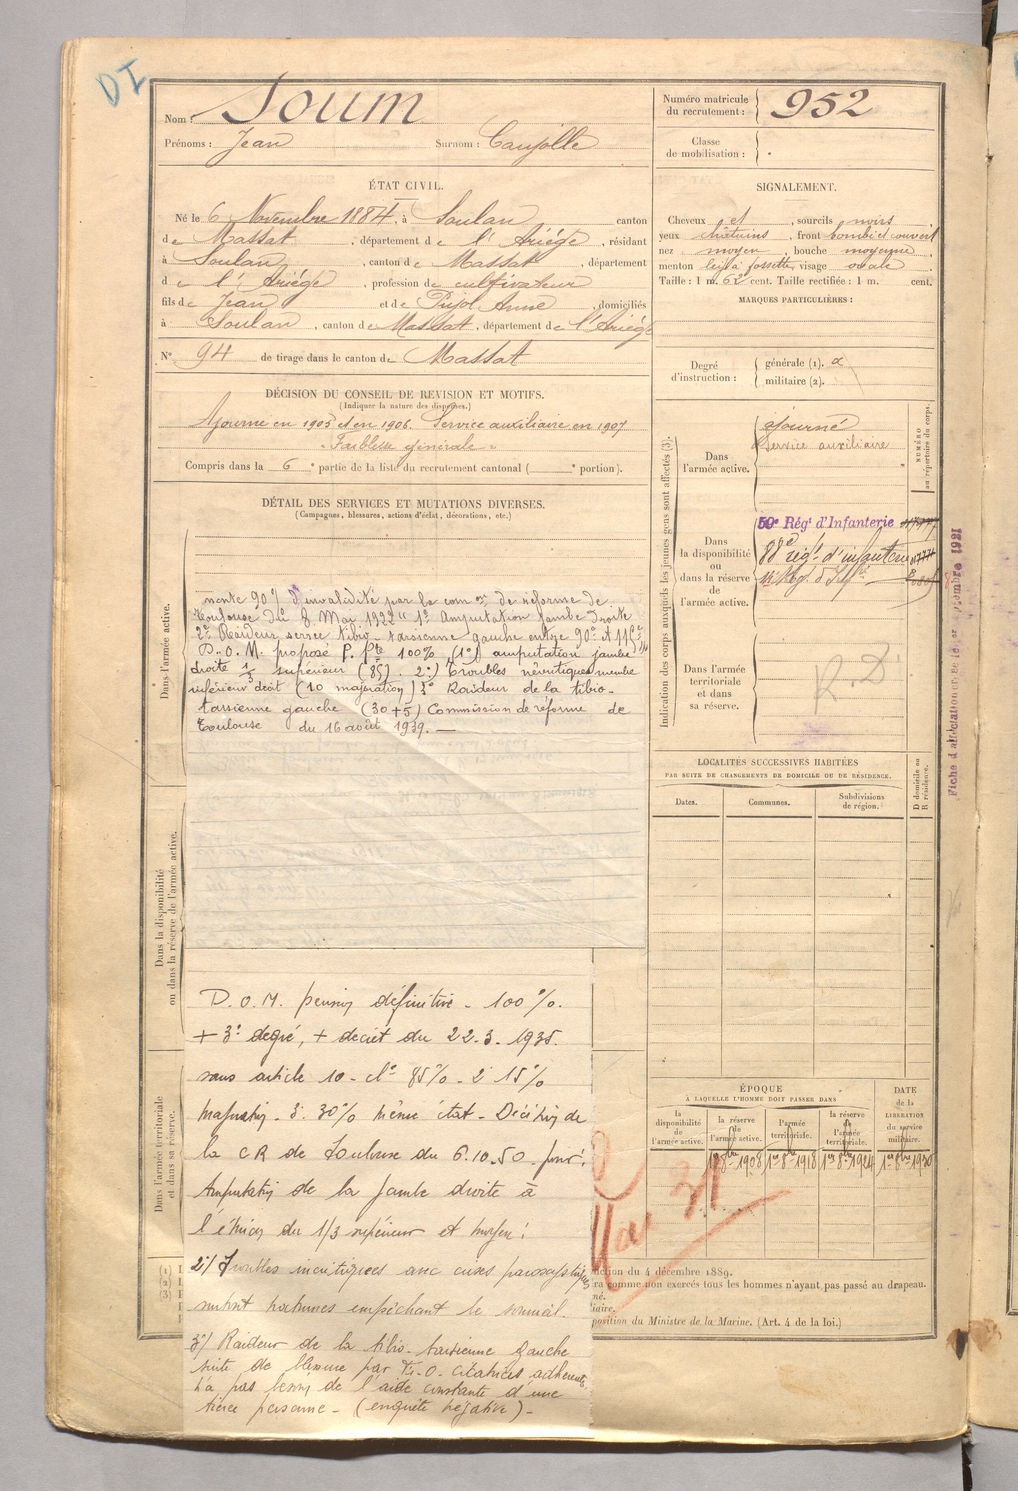 DI
Nom : Soum
Prénoms : Jean Surnom : Caujolle
Numéro matricule du recrutement : 952
Classe de mobilisation :
ÉTAT CIVIL.
Né le 6 Novembre 1884, à Soulan canton
de Massat, département de l'Ariège, résidant
à Soulan, canton de Massat, département
de l'Ariège, profession de cultivateur
fils de Jean et de Pujol Anne, domiciliés
à Soulan, canton de Massat, département de l'Ariège
N° 94 de tirage dans le canton de Massat
SIGNALEMENT.
Cheveux et, sourcils noirs
yeux châtains, front bombé et couvert
nez moyen, bouche moyenne
menton à fossette, visage ovale
Taille : 1 m. 62 cent. Taille rectifiée : 1 m. cent.
MARQUES PARTICULIÈRES :
Degré d'instruction : générale (1). 2
militaire (2).
DÉCISION DU CONSEIL DE REVISION ET MOTIFS.
(Indiquer la nature des dispenses.)
Ajourné en 1905 et en 1906. Service auxiliaire en 1907
"Faiblesse générale"
Compris dans la 6e partie de la liste du recrutement cantonal ( e portion).
DÉTAIL DES SERVICES ET MUTATIONS DIVERSES.
(Campagnes, blessures, actions d'éclat, décorations, etc.)
Dans l'armée active.
nente 90% d'invalidité par la com on de réforme de
Toulouse du 8 Mai 1922 "1° Amputation jambe droite
2° Raideur serrée tibio-tarsienne gauche entre 90° et 115°
D.O.M. proposé P. Pte 100% (1°) amputation jambe
droite 1/3 supérieur (85). 2°) Troubles névritiques membre
inférieur droit (10 majoration) 3° Raideur de la tibio-
tarsienne gauche (30+5) Commission de réforme de
Toulouse du 16 août 1939. —
Dans la disponibilité ou dans la réserve de l'armée active.
D.O.M. pension définitive - 100%.
+ 3° degré, + décret du 22.3.1935.
sans article 10 - 1° 85% - 2° 15%
majoration - 3° 30% même état - Décision de
la CR de Toulouse du 6.10.50 pour:
Amputation de la jambe droite à
l'union du 1/3 supérieur et moyen;
2°/ Troubles névritiques avec crises paroxystiques
surtout nocturnes empêchant le sommeil.
3°/ Raideur de la tibio-tarsienne gauche
suite de blessure par E.O. cicatrices adhérentes
n'a pas besoin de l'aide constante d'une
tierce personne - (enquête négative) -
Dans l'armée territoriale et dans sa réserve.
Indication des corps auxquels les jeunes gens sont affectés (3).
NUMÉRO au répertoire du corps.
Dans l'armée active.
ajourné
Service auxiliaire
Dans la disponibilité ou dans la réserve de l'armée active.
59e Régt d'Infanterie
88e régt d'infanterie
Dans l'armée territoriale et dans sa réserve.
R.D
LOCALITÉS SUCCESSIVES HABITÉES
PAR SUITE DE CHANGEMENTS DE DOMICILE OU DE RÉSIDENCE.
Dates. Communes. Subdivisions de région. D domicile ou R résidence.
ÉPOQUE
À LAQUELLE L'HOMME DOIT PASSER DANS
la disponibilité de l'armée active. la réserve de l'armée active. l'armée territoriale. la réserve de l'armée territoriale.
DATE de la LIBÉRATION du service militaire.
1er 8bre 1908 1er 8bre 1918 1er 8bre 1924 1er 8bre 1930
Mai 31
ction du 4 décembre 1889.
ra comme non exercés tous les hommes n'ayant pas passé au drapeau.
né.
liaire.
position du Ministre de la Marine. (Art. 4 de la loi.)
(1)
(2)
(3)